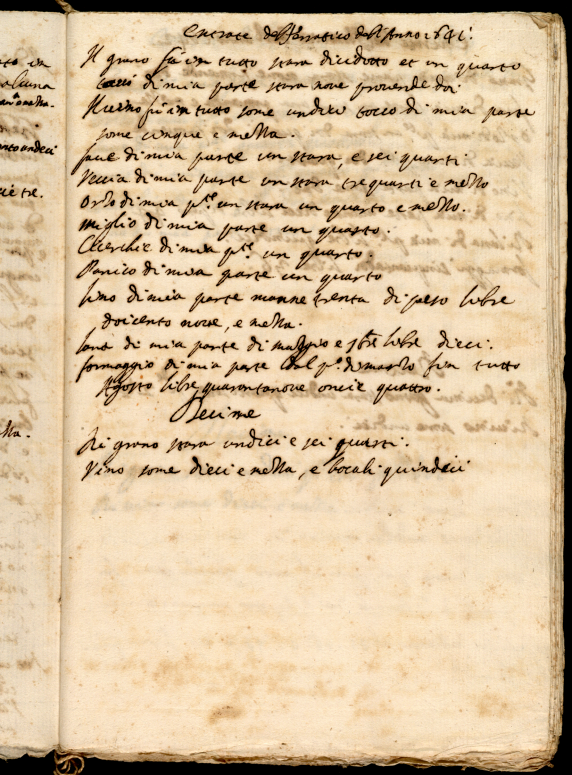 ato in
alcuna
ann onzha.
onto undeci
cie tre.
lla.
Entrate del Barratico dell'Anno 1641.
Il grano fu in tutto stara diecidotto et un quarto
toccò di mia parte stara nove provende doi
Il vino fu in tutto some undici toccò di mia parte
some cinque e mezza.
fave di mia parte un staro, e sei quarti.
Veccia di mia parte un staro tre quarti e mezzo
Orzo di mia p.te un staro un quarto e mezzo.
Miglio di mia parte un quarto.
Cicerchie di mia p.te un quarto.
Panico di mia parte un quarto
Lino di mia parte manne trenta di peso libre
doicento nove, e mezza.
lana di mia parte di maggio e 7bre libre dieci.
formaggio di mia parte dal p.o di marzo fin tutto
Agosto libre quarantanove oncie quattro.
Decime
Di grano stara undici e sei quarti.
Vino some dieci e mezza, e bocali quindeci